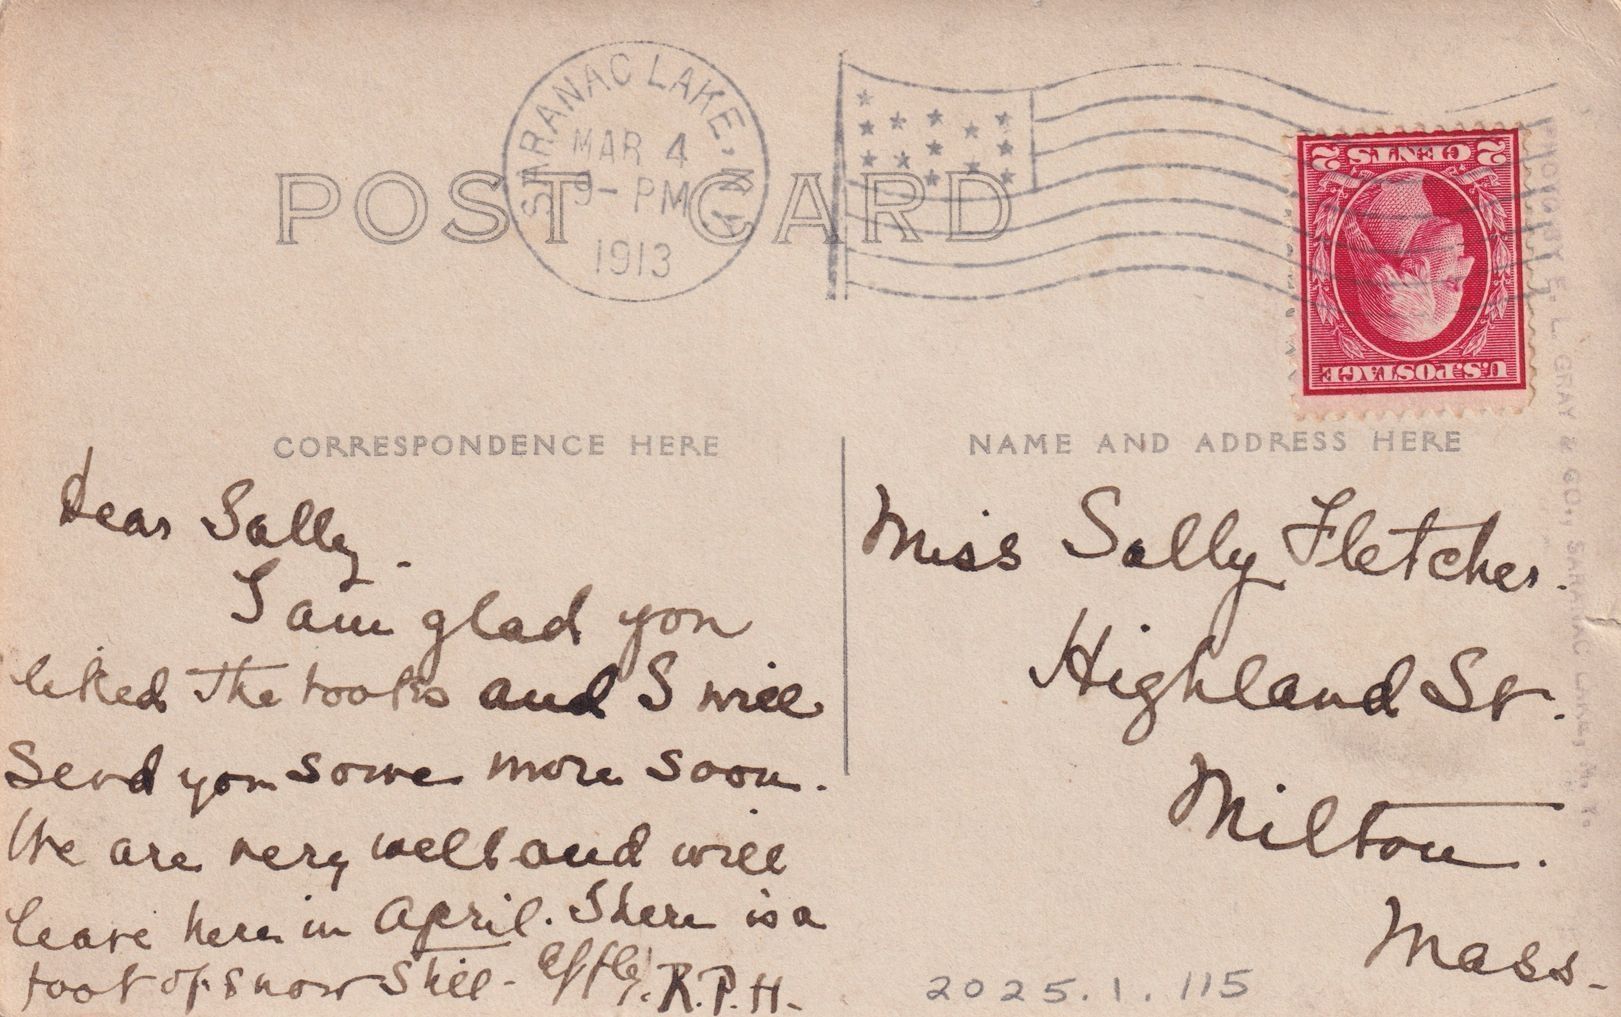 SARANAC LAKE, N.Y.
MAR 4
9 - PM
1913
POST CARD
2 CENTS 2
U.S. POSTAGE
CORRESPONDENCE HERE
NAME AND ADDRESS HERE
Dear Sally.
I am glad you
liked the books and I will
send you some more soon.
We are very well and will
leave here in April. There is a
foot of snow still.
R.P.H.
Miss Sally Fletcher.
Highland St.
Milton.
Mass.
2025.1.115
PHOTO BY E. L. GRAY & CO., SARANAC LAKE, N. Y.